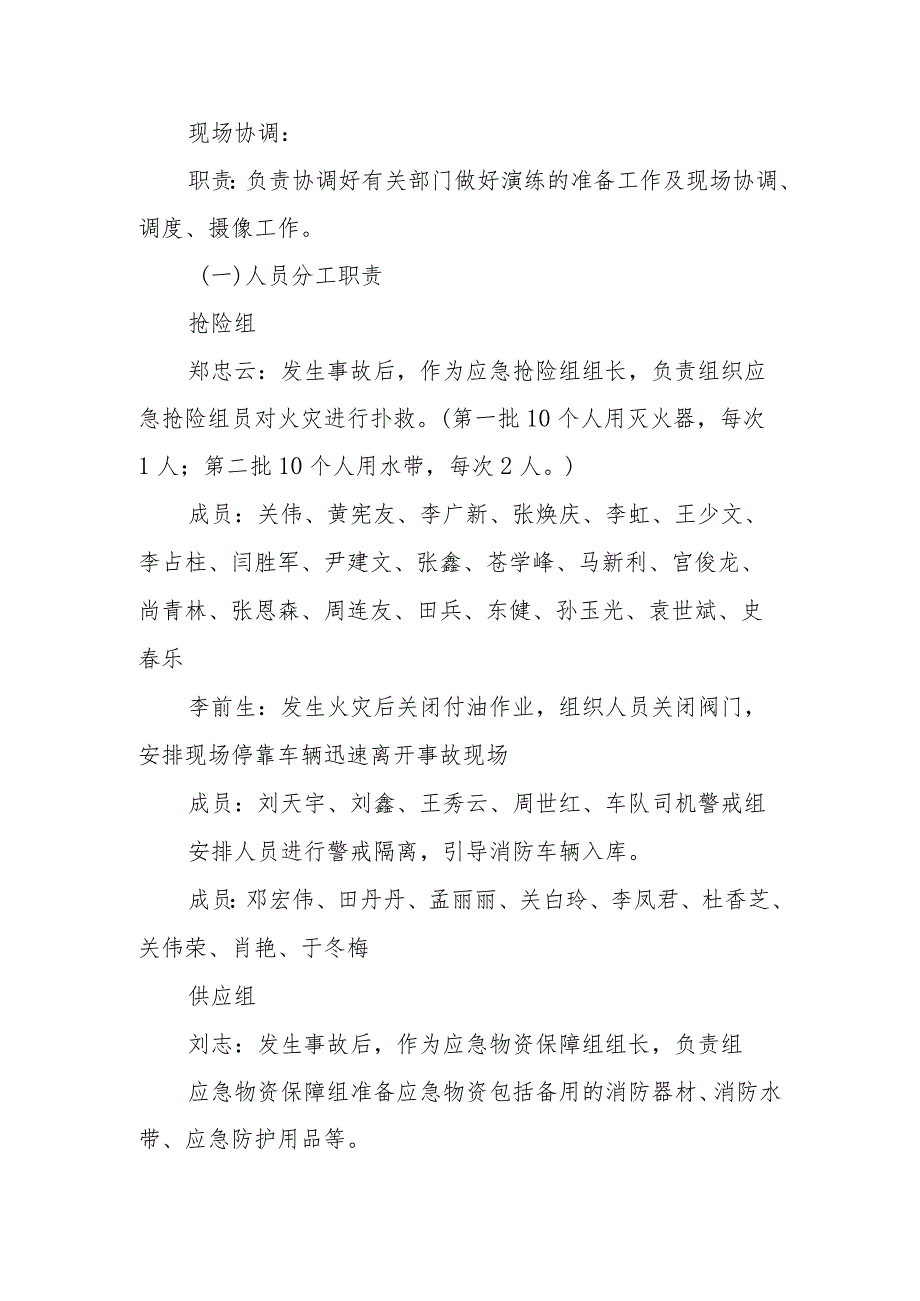 现场协调：
职责：负责协调好有关部门做好演练的准备工作及现场协调、
调度、摄像工作。
(一)人员分工职责
抢险组
郑忠云：发生事故后，作为应急抢险组组长，负责组织应
急抢险组员对火灾进行扑救。(第一批10个人用灭火器，每次
1人；第二批10个人用水带，每次2人。)
成员：关伟、黄宪友、李广新、张焕庆、李虹、王少文、
李占柱、闫胜军、尹建文、张鑫、苍学峰、马新利、宫俊龙、
尚青林、张恩森、周连友、田兵、东健、孙玉光、袁世斌、史
春乐
李前生：发生火灾后关闭付油作业，组织人员关闭阀门，
安排现场停靠车辆迅速离开事故现场
成员：刘天宇、刘鑫、王秀云、周世红、车队司机警戒组
安排人员进行警戒隔离，引导消防车辆入库。
成员：邓宏伟、田丹丹、孟丽丽、关白玲、李凤君、杜香芝、
关伟荣、肖艳、于冬梅
供应组
刘志：发生事故后，作为应急物资保障组组长，负责组
应急物资保障组准备应急物资包括备用的消防器材、消防水
带、应急防护用品等。